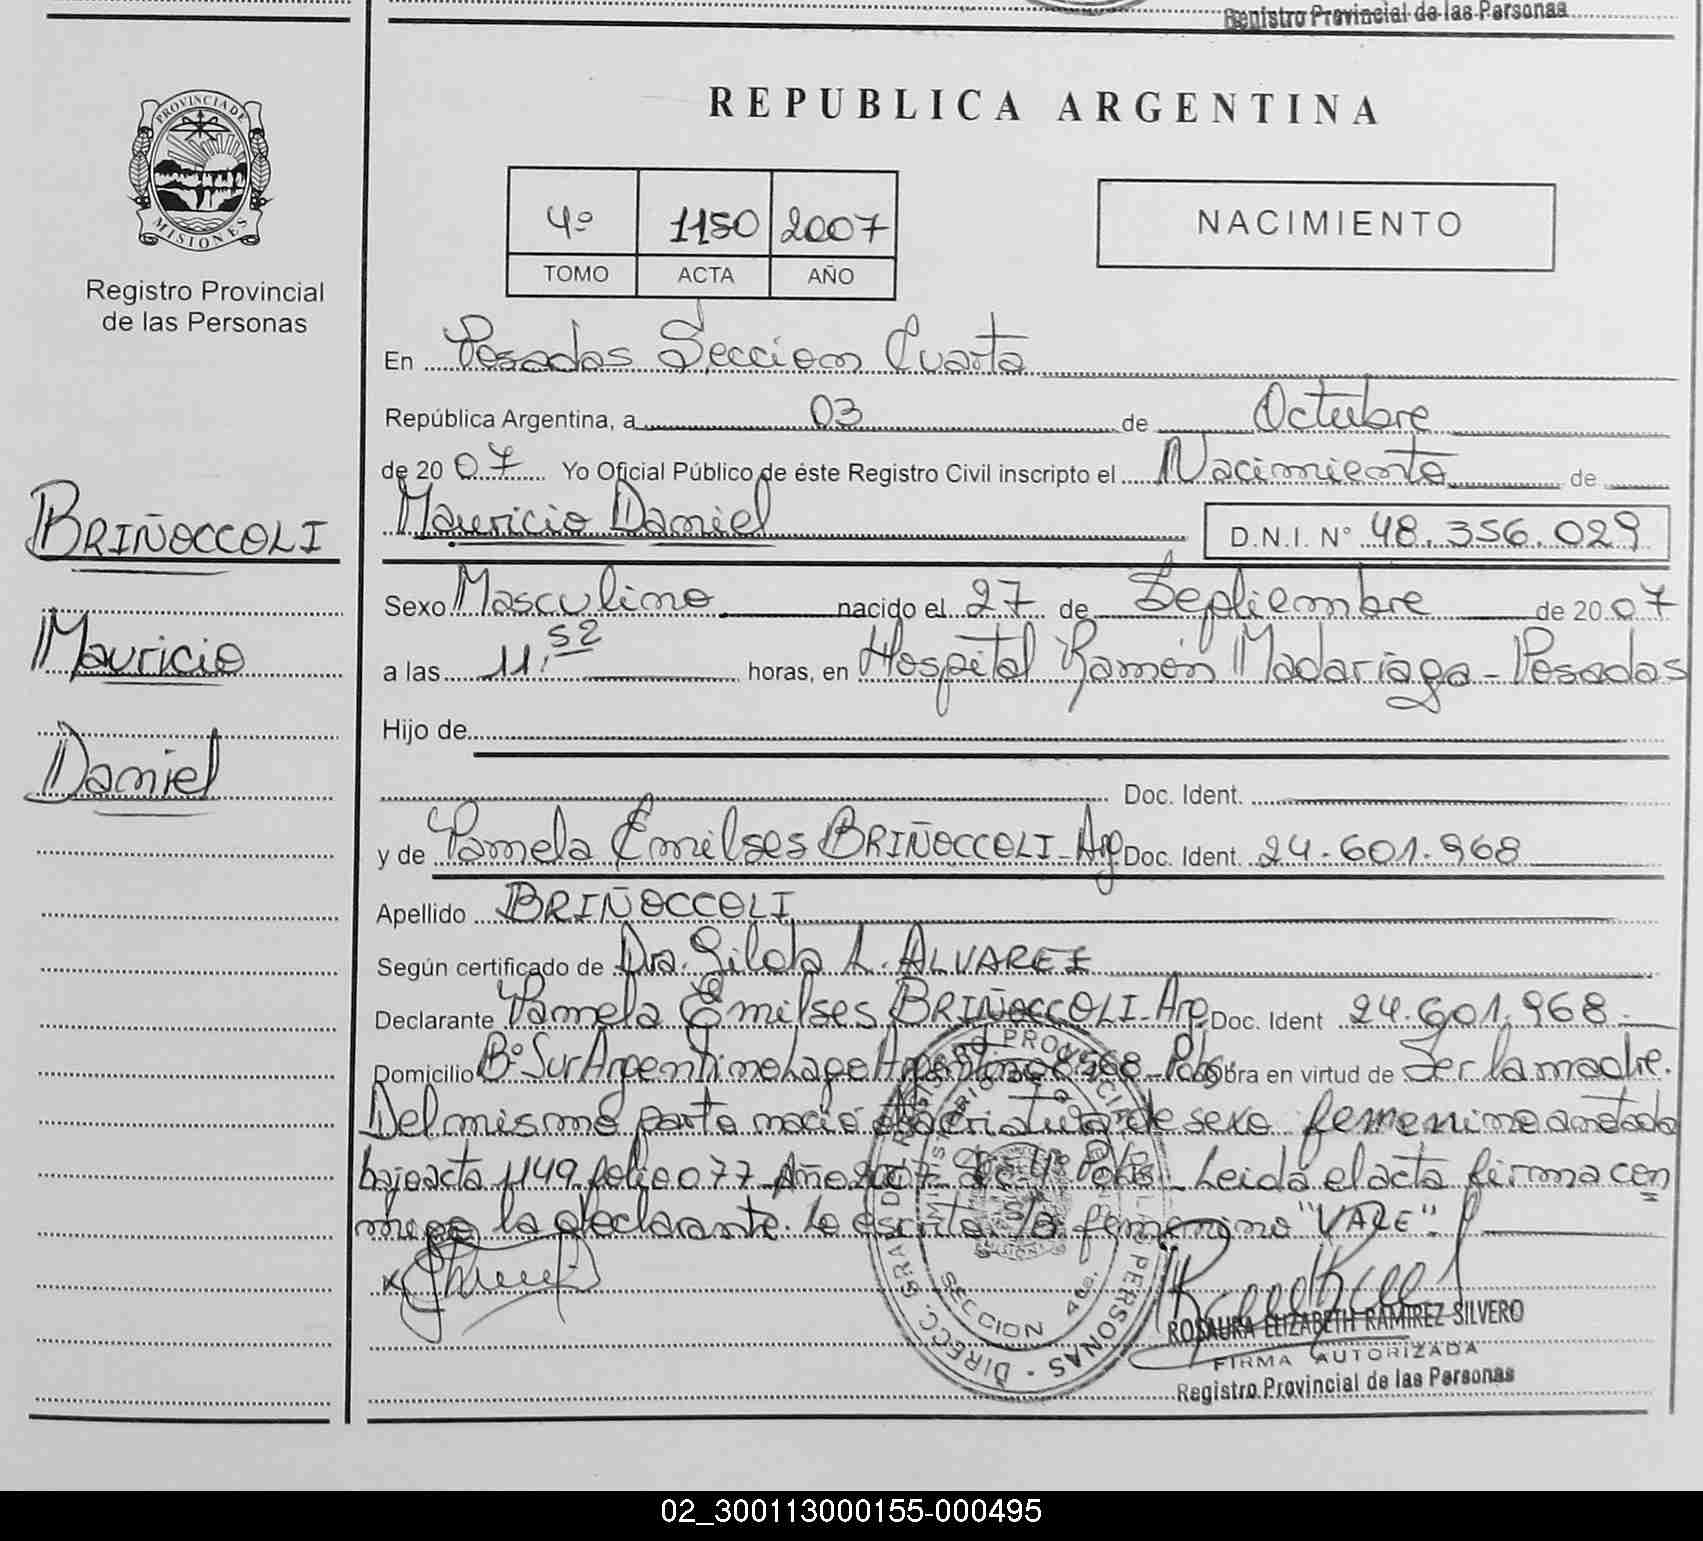 Registro Provincial de las Personas
PROVINCIA DE
MISIONES
Registro Provincial
de las Personas
BRIÑOCCOLI
Mauricio
Daniel
REPUBLICA ARGENTINA
4º 1150 2007
TOMO ACTA AÑO
NACIMIENTO
En Posadas Seccion Cuarta
República Argentina, a 03 de Octubre
de 20 07 Yo Oficial Público de éste Registro Civil inscripto el Nacimiento de
Mauricio Daniel D.N.I. Nº 48.356.029
Sexo Masculino nacido el 27 de Septiembre de 20 07
a las 11,52 horas, en Hospital Ramón Madariaga - Posadas
Hijo de
Doc. Ident.
y de Pamela Emilses BRIÑOCCOLI - Arg Doc. Ident. 24.601.968
Apellido BRIÑOCCOLI
Según certificado de Dra. Gilda L. ALVAREZ
Declarante Pamela Emilses BRIÑOCCOLI - Arg Doc. Ident 24.601.968.
Domicilio Bº Sur Argentino Lago Argentino 8968 - Pdas Obra en virtud de Ser la madre.
Del mismo parto nació otra criatura de sexo femenino anotada
bajo acta 1149 folio 077 Año 2007 4º Pdas - Leida el acta firma con
migo la declarante. Lo escrito s/b femenino "VALE".
DIRECC. GRAL. DEL REGISTRO PROVINCIAL DE LAS PERSONAS
SECCION 4da.
ROSAURA ELIZABETH RAMIREZ SILVERO
FIRMA AUTORIZADA
Registro Provincial de las Personas
02_300113000155-000495